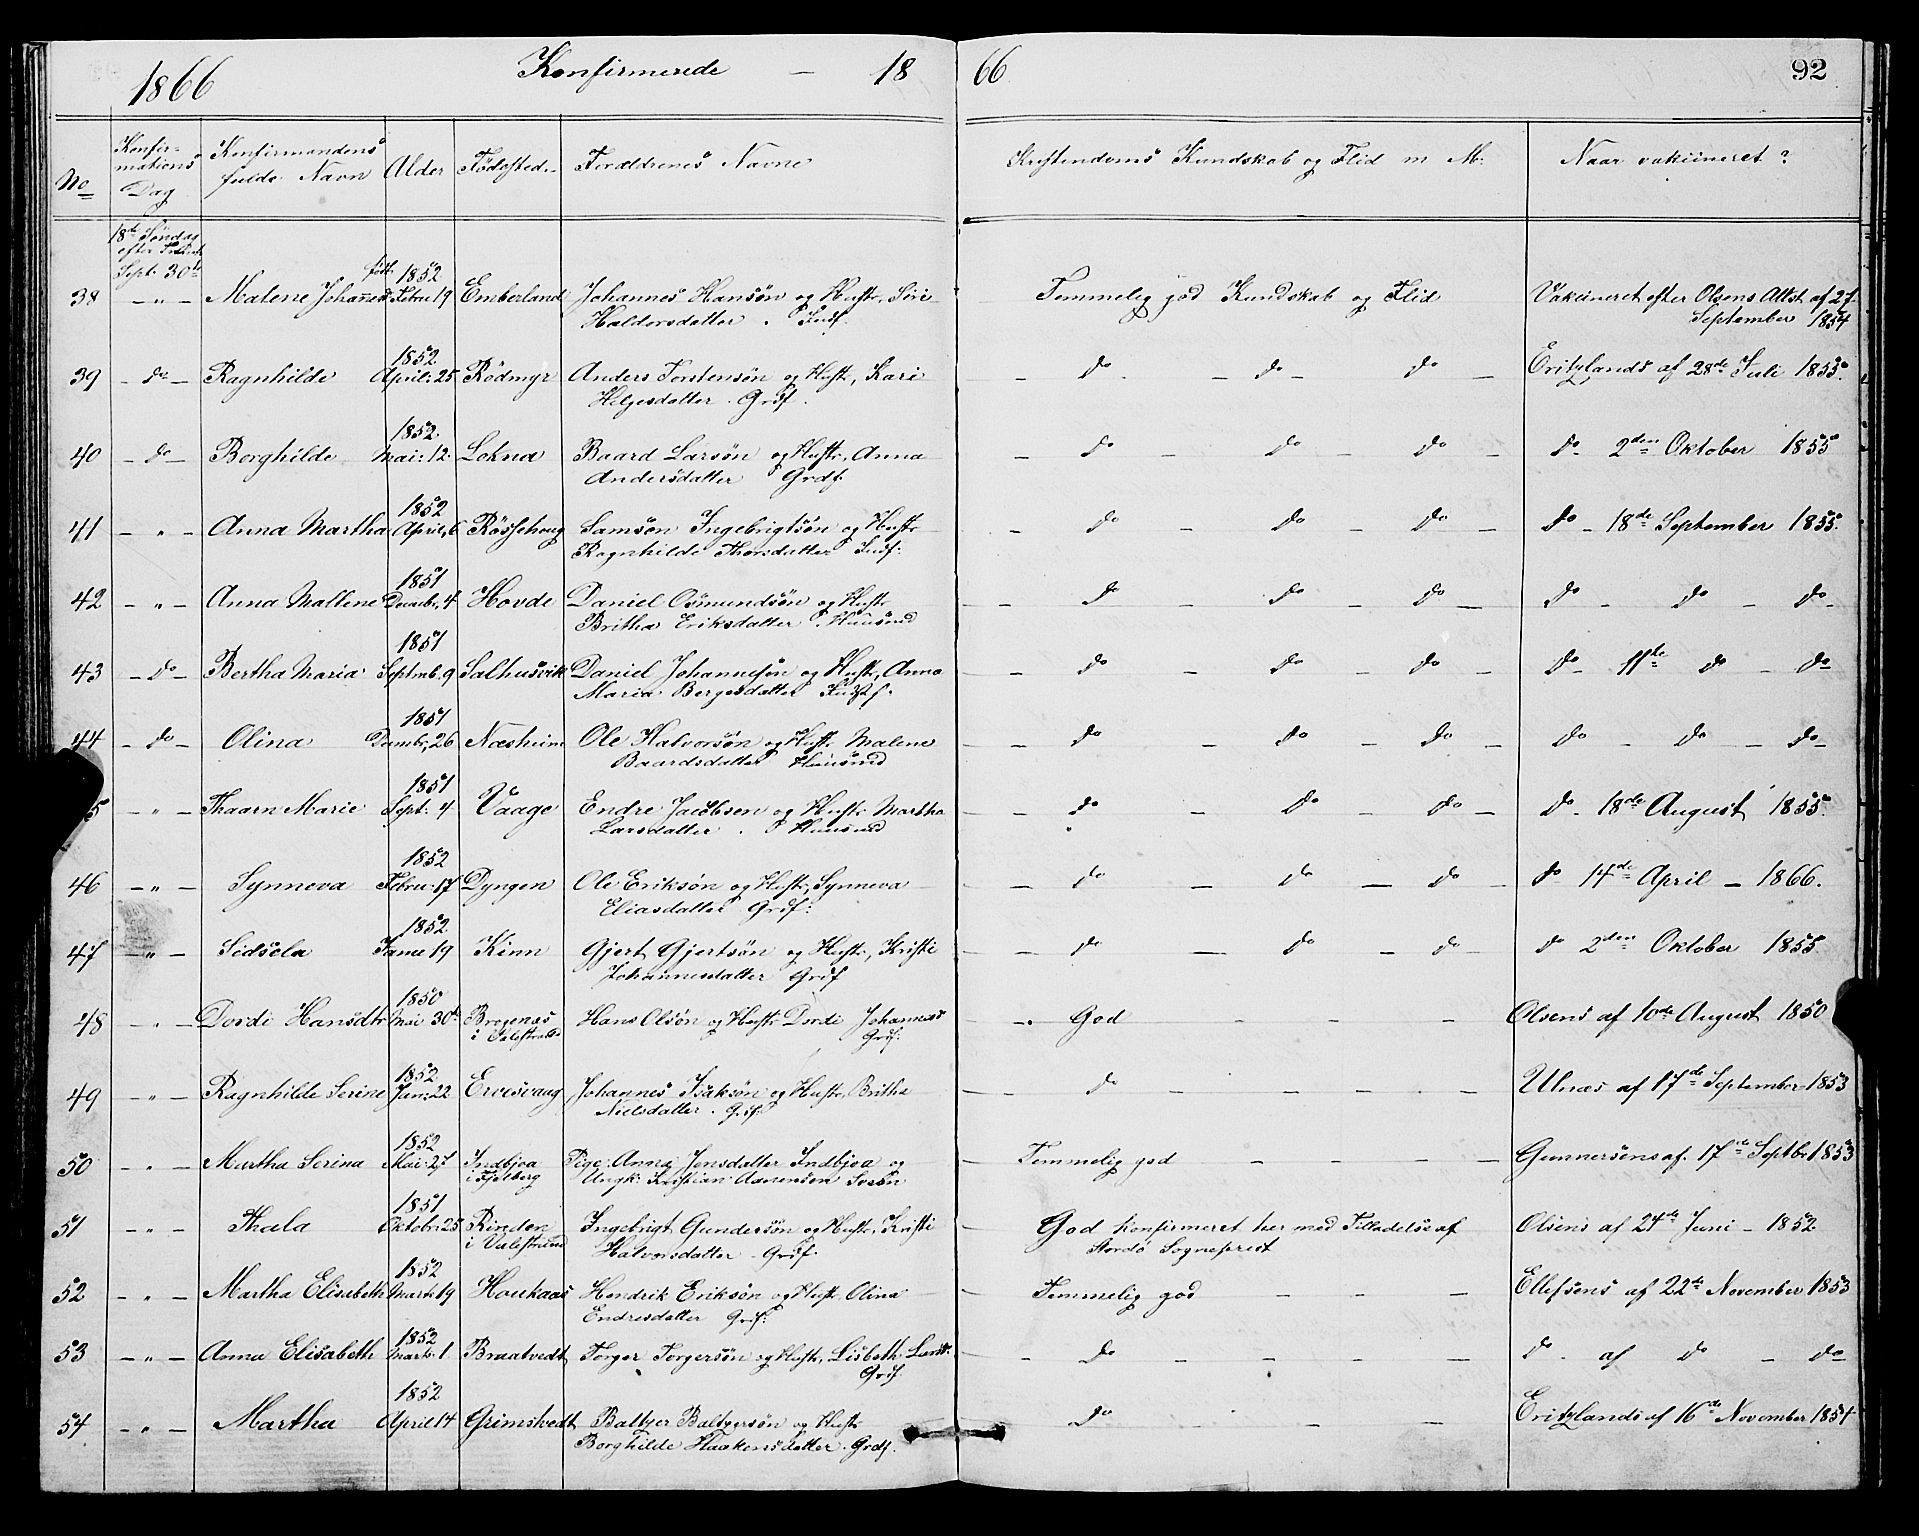 1866 Konfirmerede – 18 66 92
No Konfirmations Dag Konfirmandens fulde Navn Alder Fødested Forældrenes Navne Kristendoms Kundskab og Flid m M: Naar vakcineret?
18de Søndag
efter Trinit
Sept. 30te
38 – " – Malene Johannesd født 1852 Febru 19 Emberland Johannes Hansøn og Hustr, Siri Temmelig god Kundskab og Flid Vakcineret efter Olsens Attst af 27
Haldorsdatter . Indf. September 1854
39 – do – Ragnhilde 1852 April: 25 Rödmyr Anders Torstensøn og Hustr, Kari – do – do – do – Eritzlands af 28de Juli 1855.
Helgesdatter . Grdf.
40 – do – Borghilde 1852 Mai: 12 Lokna Baard Larsøn og Hustr, Anna – do – do – do – do – 2den Oktober 1855
Andersdatter Grdf.
41 – " – Anna Martha 1852 April, 6 Røssehoug Samson Ingebrigtsøn og Hustr – do – do – do – do – 18de September 1855.
Ragnhilde Thorsdatter Indf:
42 – " – Anna Mallene 1851 Decmbr, 4 Hovde Daniel Osmundsøn og Hustr – do – do – do – do – do – do –
Britha Eriksdatter . Huusmd
43 – do – Bertha Maria 1851 Septmb. 9 Salhusvik Daniel Johannesøn og Hustr, Anna – do – do – do – do – 11te do – do –
Maria Bergesdatter
44 – do – Olina 1851 Decmbr, 26 Næsheim Ole Halvorsøn og Hustr Malene – do – do – do – do – do – do –
Baardsdatter Huusmd
5 – " – Thaarn Marie 1851 Sept: 4 Vaage Endre Jacobsen og Hustr Martha – do – do – do – do – 18de August 1855.
Larsdatter . Huusmd
46 – " – Synneva 1852 Febru: 17 Dyngen Ole Eriksøn og Hustr, Synneva – do – do – do – do – 14de April – 1866.
Eliasdatter Grdf:
47 – " – Sidsela 1852 Janu 19 Kinn Gjert Gjertsøn og Hustr, Kristi – do – do – do – do 2den Oktober 1855
Johannesdatter Grdf
48 – " – Dordi Hansdtr 1850 Mai 30te Hans Olsøn og Hustr Dordi Johannes – God – – – Olsens af 10de August 1850
Grdf:
49 – " – Ragnhilde Serine 1852 Jan: 22 Ervesvaag Johannes Isaksøn og Hustr, Britha – do – – – Ulnæs af 17de September 1853
Nielsdatter . Grdf:
50 – " – Martha Serina 1852 Mai: 27 Indbjoa i Fjelberg Pige: Anna Jensdatter Indbjoa og Temmelig god – – – – Gunnersens af. 17de Septbr 1853
Ungk: Kristian
51 – " – Thala 1851 Oktobr: 25 Rinden i Valestrand Ingebrigt Gundersøn og Hustr, Kristi God konfirmeret her med Tilladelse af Olsens af 24de Juni – 1852
Halvorsdatter – Grdf. Stordø Sogneprest
52 – " – Martha Elisabeth 1852 Marts 19 Houkaas Hendrik Eriksøn og Hustr. Olina – Temmelig god – – – Ellefsens af 22de November 1853
Endresdatter Grdf:
53 – " – Anna Elisabeth 1852 Marts. 1 Braatvedt Torger Torgersøn og Hustr, Lisbeth – do – – – – do – af do – do
Grdf
54 – " – Martha 1852 April 14 Grimstvedt Baltzer Baltzersøn og Hustr do – – – Eritzlands af 16de November 1851
Borghilde Haakensdatter . Grdf.